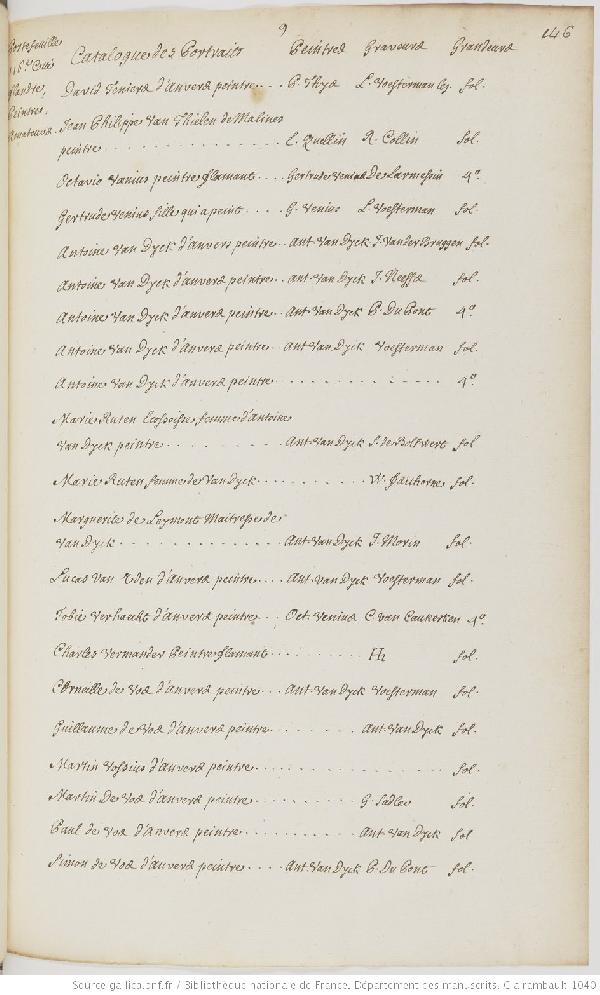 9
146
Portefeuille
Flandre,
Peintres
Catalogue des Portraits Peintres Graveurs Grandeurs
David Teniers d'anvers peintre.... P. Thys L. Voesterman leg. fol.
Jean Philippe Van Thielen de Malines
peintre ................ E. Quellin R. Collin fol.
Octavio Vanius peintre flamant.... Gertrude Venius De Larmessin 4º.
Gertrude Venius fille qui a peint.... G. Venius L. Voesterman fol.
Antoine Van Dyck d'anvers peintre.. Ant. Van Dyck J. Van der Bruggen fol.
Antoine Van Dyck d'anvers peintre.. Ant. Van Dyck J. Neeffs fol.
Antoine Van Dyck d'anvers peintre.. Ant. Van Dyck P. Du Pont 4º
Antoine Van Dyck d'anvers peintre.. Ant. Van Dyck Voesterman fol.
Antoine Van Dyck d'anvers peintre............ 4º
Marie Ruten Ecossoise, femme d'Antoine
Van Dyck peintre........... Ant. Van Dyck S. de Bolswert fol
Marie Ruten femme de Van Dyck............ W. fol.
Marguerite de Leymont Maitresse de
Van Dyck................ Ant. Van Dyck J. Morin fol.
Lucas Van Uden d'anvers peintre.... Ant. Van Dyck Voesterman fol.
Tobie Verhaecht d'anvers peintre... Oct. Venius C. van Caukerken 4º.
Charles Vermander Peintre flamant......... Hh fol.
Cornaille de Vos d'anvers peintre... Ant. Van Dyck Voesterman fol.
Guillaume de Vos d'anvers peintre........ Ant. Van Dyck fol.
Martin Vossius d'anvers peintre.................. fol.
Martin De Vos d'anvers peintre........... G. Sadler fol.
Paul de Vos d'anvers peintre........... Ant. Van Dyck fol
Simon de Vos d'anvers peintre..... Ant. Van Dyck P. Du Pont fol.
Source gallica.bnf.fr / Bibliothèque nationale de France. Département des manuscrits. Clairambault 1040